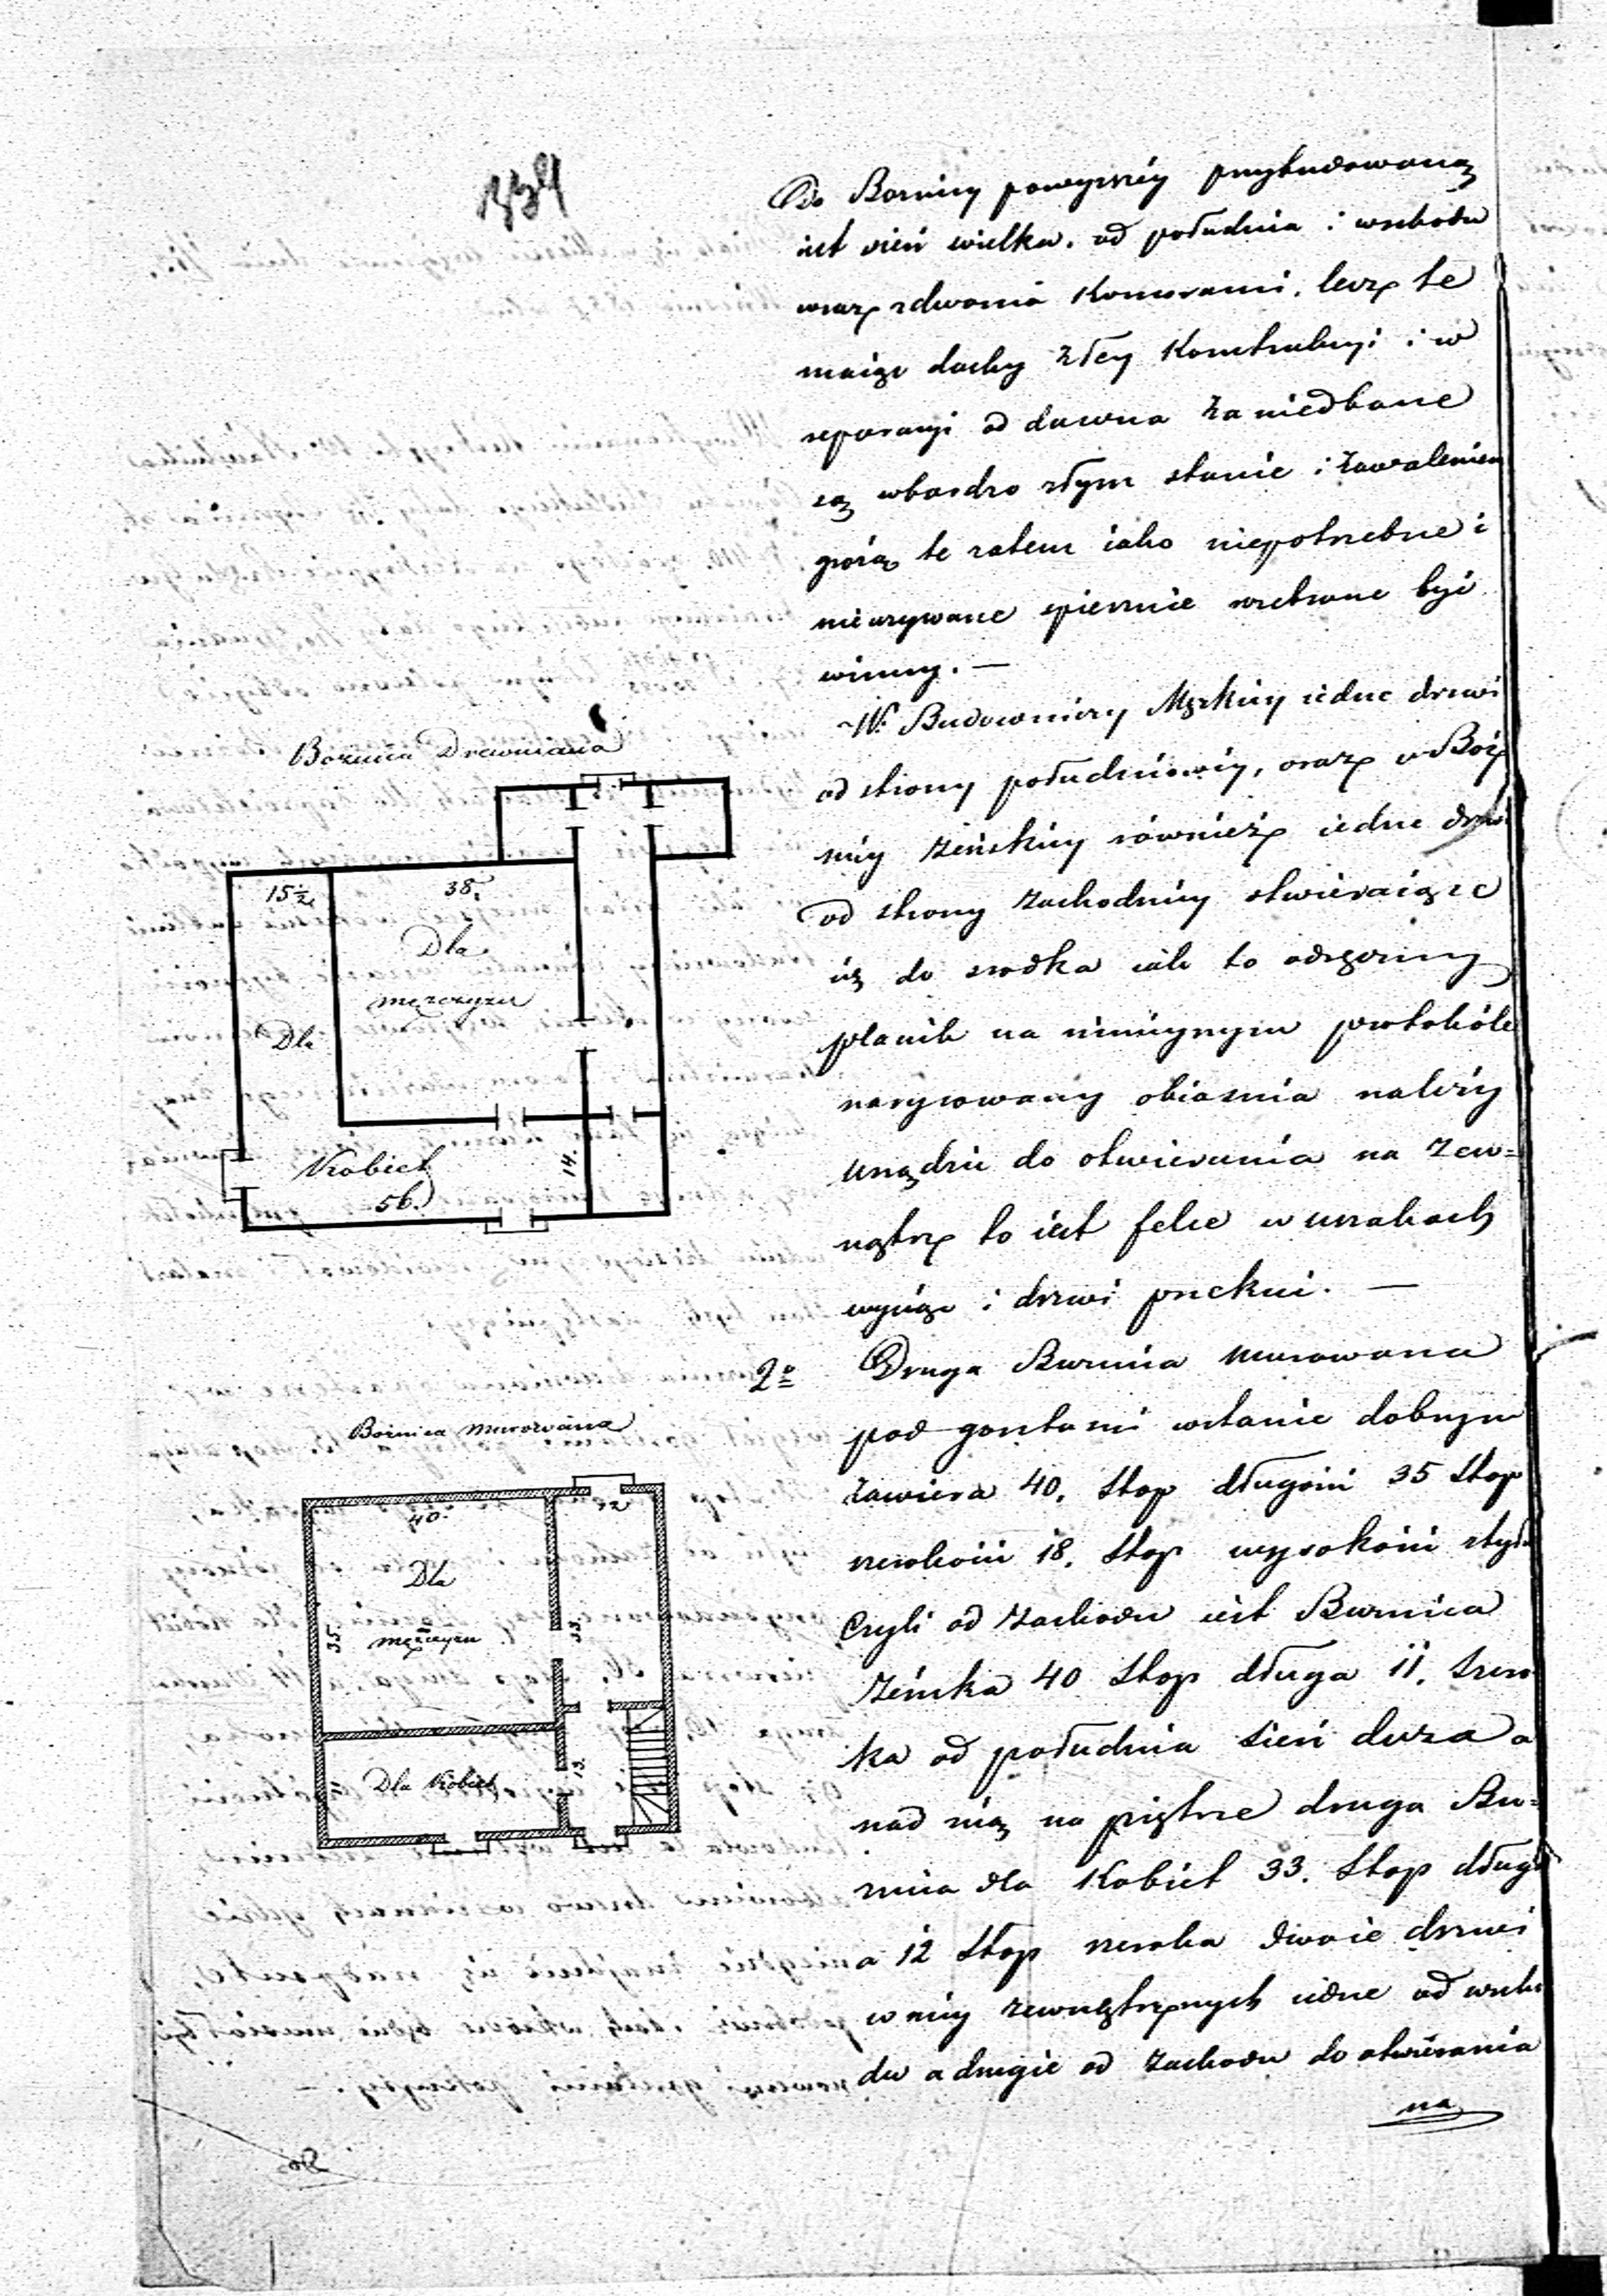 334
Do Bożnicy powyzszéy przybudowaną
iest sień wielka. od południa i wschodu
wraz zdwoma Komorami, lecz te
maiąc dachy złey Konstrukcyi i w
reperacyi od dawna zaniedbane
są wbardzo złym stanie i zawaleniem
grożą te zatem iako niepotrzebne i
nieuzywane spiesznie rozebrane być
winny. —
W. Budowniczy Męzkiéy iedne drzwi
od strony południowéy, oraz w Boż
nicy żeńskiéy również iedne drzwi
od strony zachodniéy otwieraiące
się do srodka iak to odręczny
planik na ninieyszym protokóle
narysowany obiasnia należy
urządzić do otwierania na zew=
nątrz to iest felce w usiakach
wyciąć i drzwi przekuć. —
2º Druga Buznica murowana
pod gontami wstanie dobrym
zawiera 40. Stop długości 35 Stop
szerokości 18. Stop wysokości ztyłu
Czyli od zachodu iest Buznica
żeńska 40 Stop długa 11. szero
ka od południa sień duza a
nad nią na piętrze druga Bu=
znica dla Kobiet 33. Stop długa
a 12 Stop szeroka dwoie drzwi
w niéy zewnętrznych iedne od wscho
du a drugie od zachodu do otwierania
na
Bożnica Drewniana
15½
38.
Dla
męzczyzn
Dla
Kobiet
56.
14.
Bożnica Murowana
40.
12
Dla
męzczyzn
35.
33.
Dla Kobiet
13.
Do